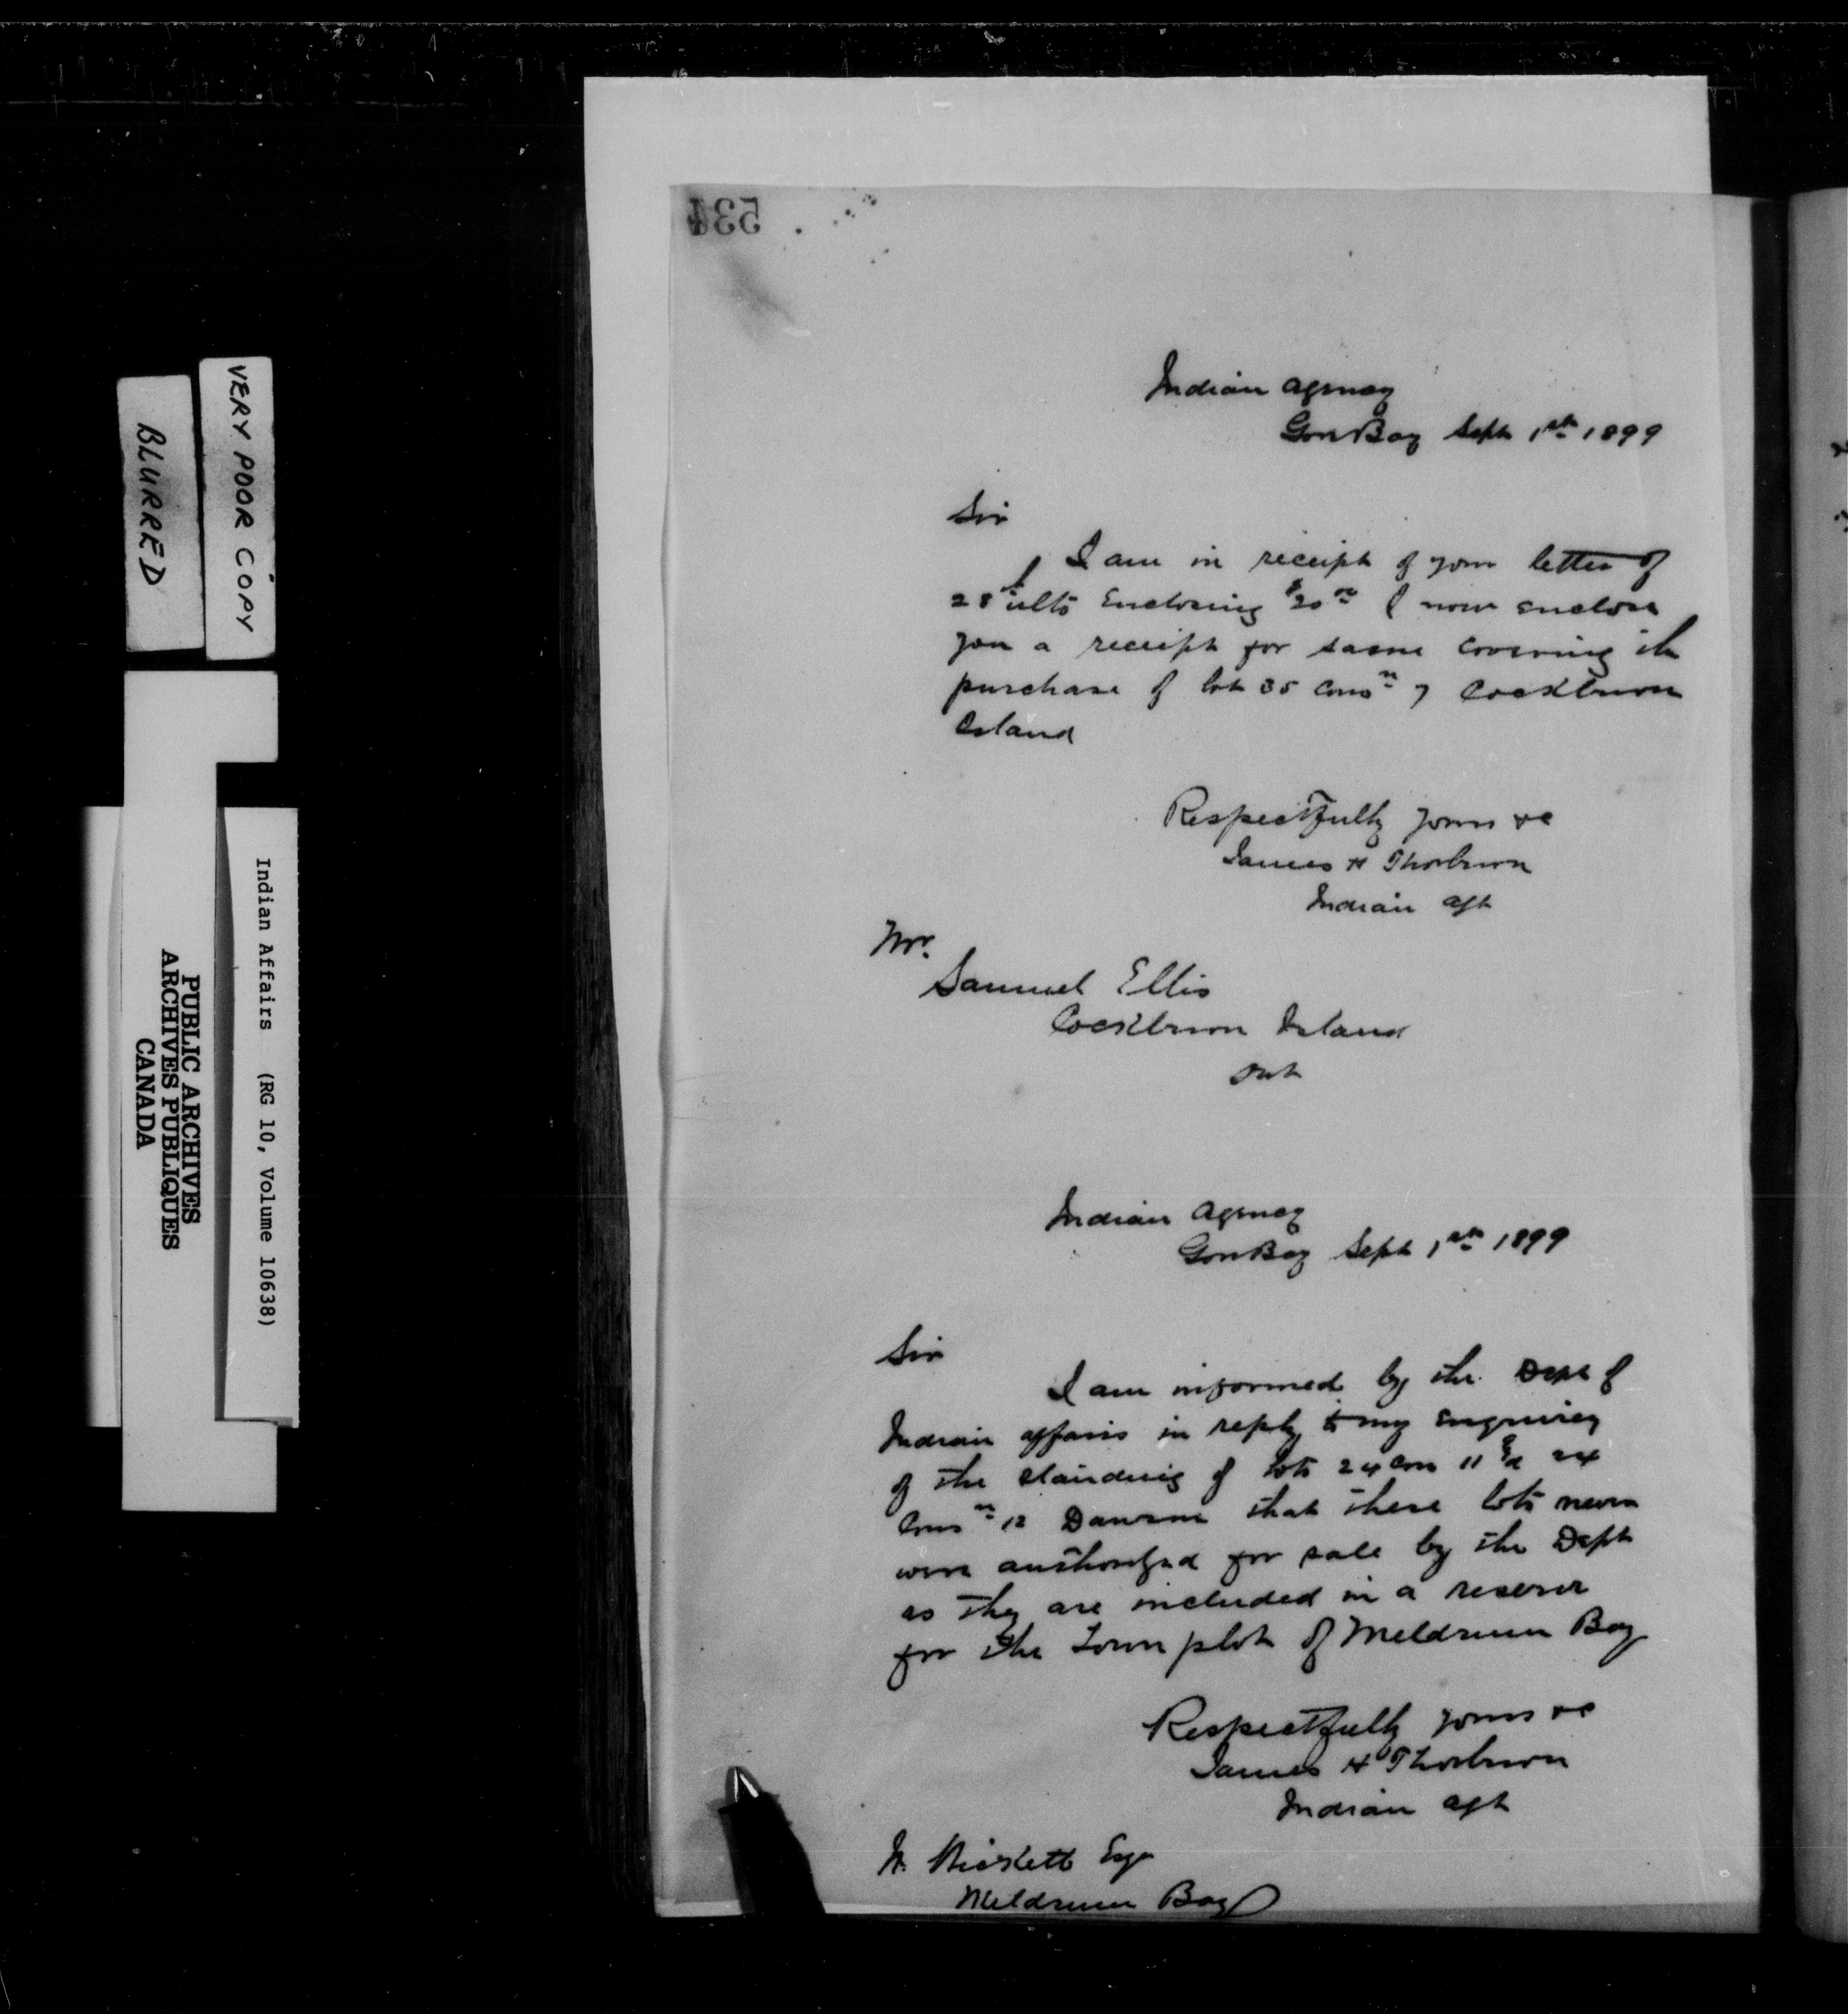 534
Indian Agency
Gore Bay Sept 1st 1899
Sir
I am in receipt of your letter of
28th ulto Enclosing $20 00 I now enclose
you a receipt for same covering the
purchase of lot 35 Conn 7 Cockburn
Island
Respectfully yours &c
James H Thorburn
Indian Agt
Mr.
Samuel Ellis
Cockburn Island
Ont
Indian Agency
Gore Bay Sept 1st 1899
Sir
I am informed by the Dept of
Indian affairs in reply to my enquiry
of the standing of lots 24 Con 11 & 24
Conn 12 Dawson that these lots never
were authorized for sale by the Dept
as they are included in a reserve
for the Town plot of Meldrum Bay
Respectfully yours &c
James H Thorburn
Indian Agt
Esqr
Meldrum Bay
VERY POOR COPY
BLURRED
Indian Affairs (RG 10, Volume 10638)
PUBLIC ARCHIVES
ARCHIVES PUBLIQUES
CANADA